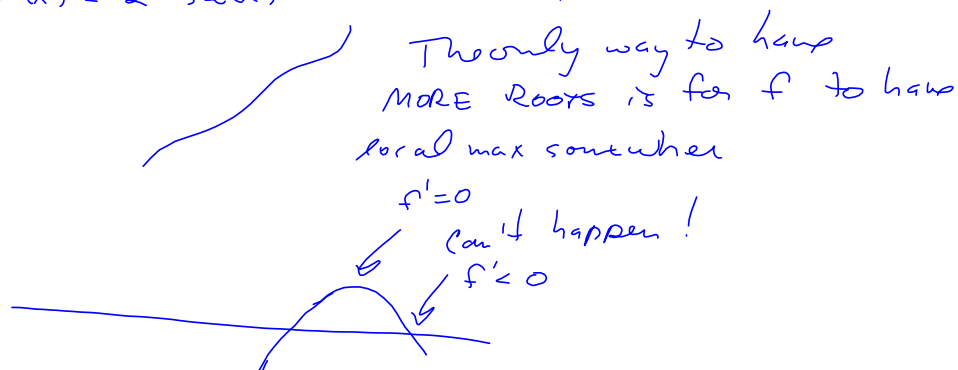 The only way to have
MORE ROOTS is for f to have
local max somewher
f'=0
can't happen!
f'< 0